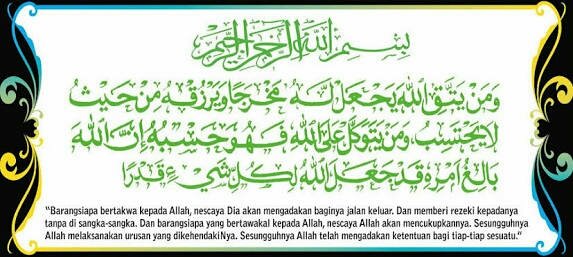 بِسْمِ اللَّهِ الرَّحْمَنِ الرَّحِيمِ
وَمَنْ يَتَّقِ اللَّهَ يَجْعَلْ لَهُ مَخْرَجًا وَيَرْزُقْهُ مِنْ حَيْثُ
لَا يَحْتَسِبُ، وَمَنْ يَتَوَكَّلْ عَلَى اللَّهِ فَهُوَ حَسْبُهُ إِنَّ اللَّهَ
بَالِغُ أَمْرِهِ قَدْ جَعَلَ اللَّهُ لِكُلِّ شَيْءٍ قَدْرًا
"Barangsiapa bertakwa kepada Allah, nescaya Dia akan mengadakan baginya jalan keluar. Dan memberi rezeki kepadanya
tanpa di sangka-sangka. Dan barangsiapa yang bertawakal kepada Allah, nescaya Allah akan mencukupkannya. Sesungguhnya
Allah melaksanakan urusan yang dikehendakiNya. Sesungguhnya Allah telah mengadakan ketentuan bagi tiap-tiap sesuatu."